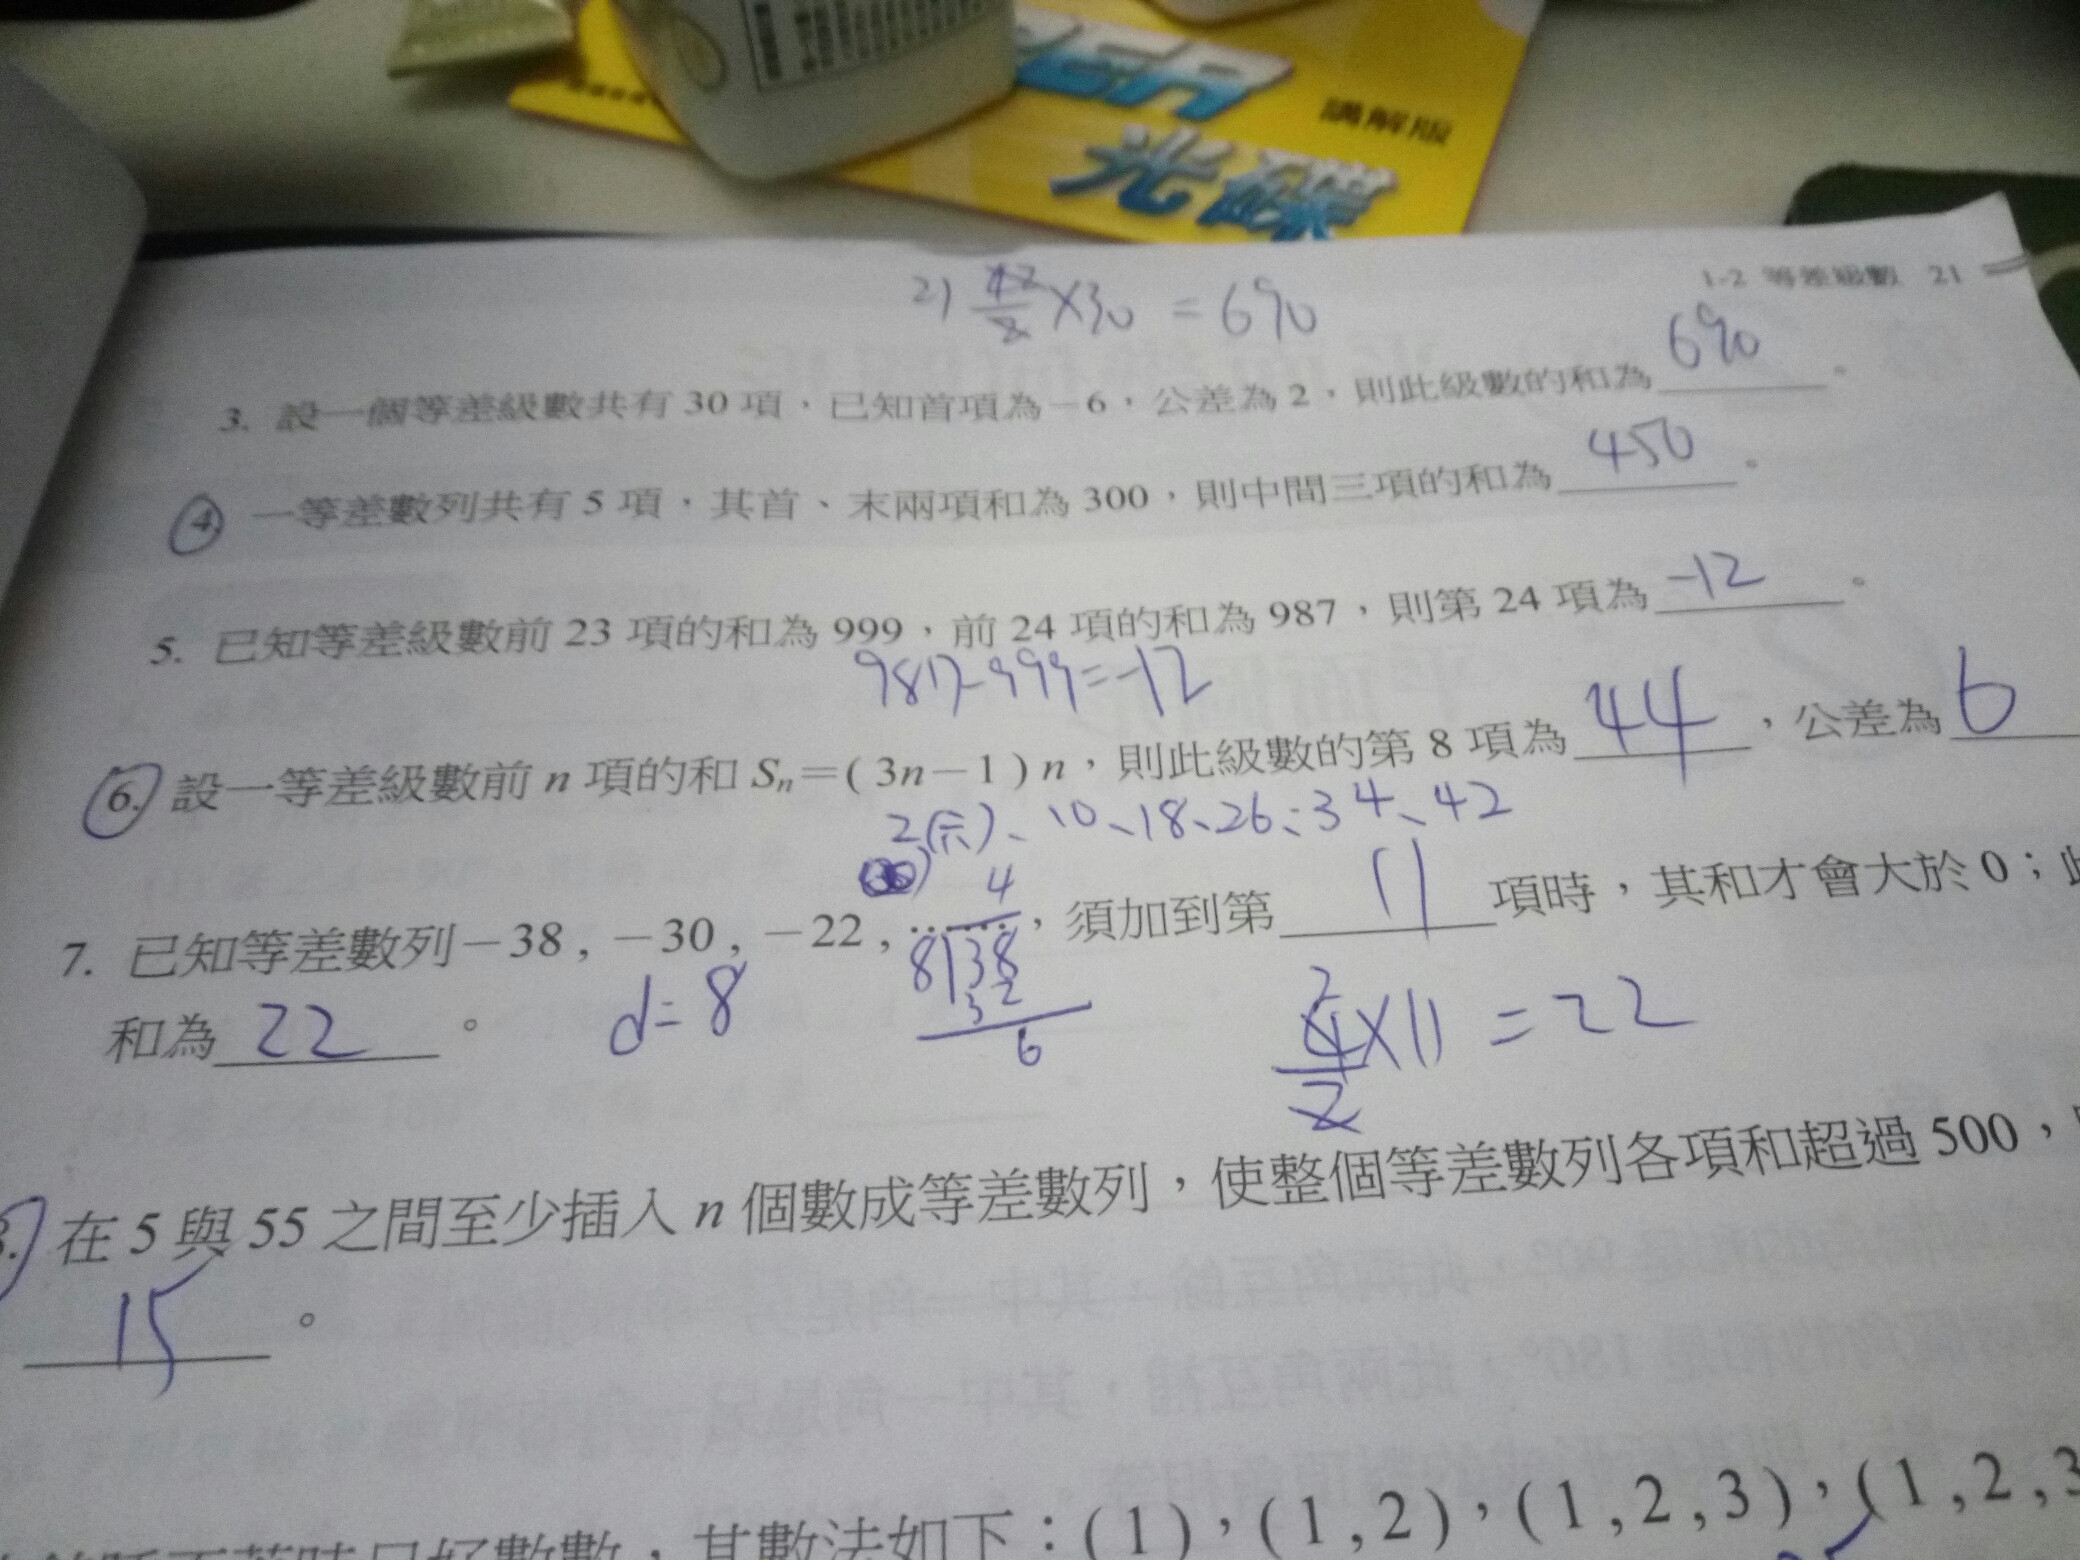 講解版
光碟
1-2 等差級數 21
21 42/2 ×30 = 690
3. 設一個等差級數共有 30 項,已知首項為−6,公差為 2,則此級數的和為 690 。
4. 一等差數列共有 5 項,其首、末兩項和為 300,則中間三項的和為 450 。
5. 已知等差級數前 23 項的和為 999,前 24 項的和為 987,則第 24 項為 -12 。
987-999=-12
6. 設一等差級數前 n 項的和 Sn=(3n−1)n,則此級數的第 8 項為 44 ,公差為 6
2(六)、10、18、26、34、42
7. 已知等差數列−38 , −30 , −22 , ……,須加到第 11 項時,其和才會大於 0;此
4
8 38
32
6
和為 22 。
d=8
2
4/2 ×11 = 22
8. 在 5 與 55 之間至少插入 n 個數成等差數列,使整個等差數列各項和超過 500,
15 。
其數法如下:(1),(1,2),(1,2,3),(1,2,3